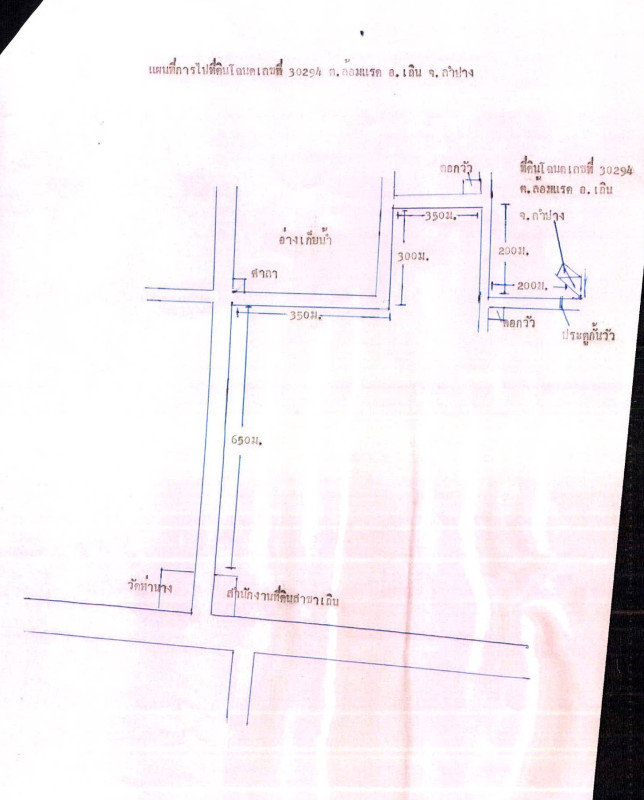 แผนที่การไปที่ดินโฉนดเลขที่ 30294 ต.ล้อมแรด อ.เถิน จ.ลำปาง
คอกวัว
ที่ดินโฉนดเลขที่ 30294
ต.ล้อมแรด อ.เถิน
จ.ลำปาง
350ม.
อ่างเก็บน้ำ
300ม.
200ม.
ศาลา
200ม.
350ม.
คอกวัว
ประตูกั้นวัว
650ม.
วัดท่านาง
สำนักงานที่ดินสาขาเถิน